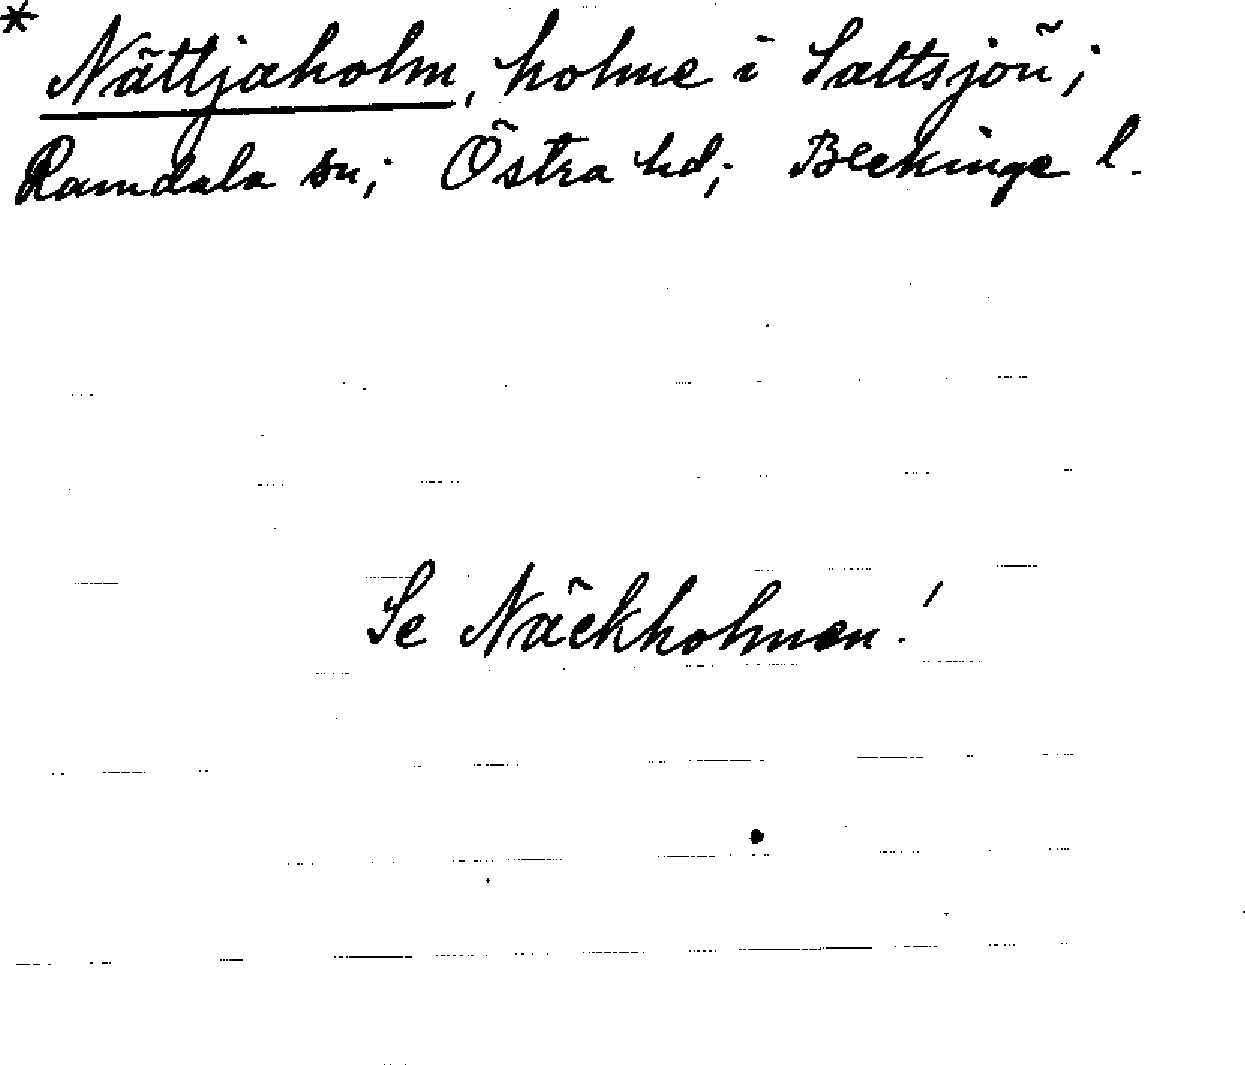 * Nättjaholm, holme i Saltsjön;
Ramdala sn; Östra hd; Blekinge l.
Se Näckholmen!